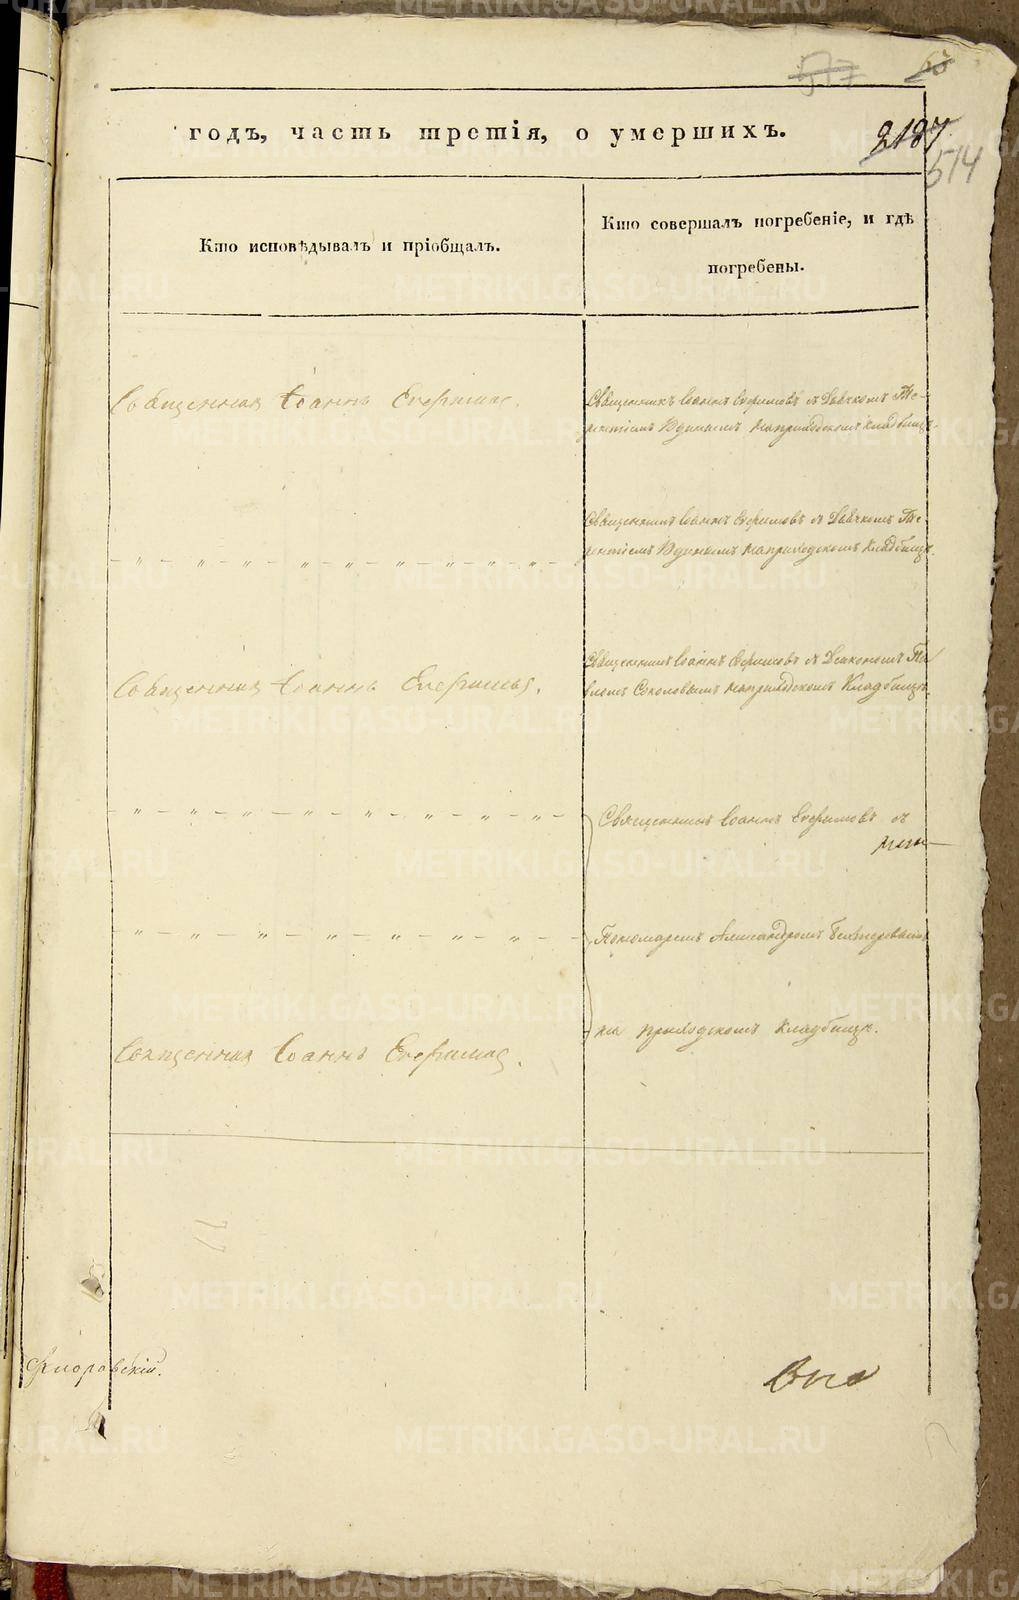 517
63
годъ, часть третія, о умершихъ.
2187
514
Кто исповѣдывалъ и пріобщалъ.
Кто совершалъ погребеніе, и гдѣ
погребены.
Священникъ Іоаннъ Евфимовъ.
Священникъ Іоаннъ Евфимовъ съ Дьячкомъ Те-
рентіемъ Удинымъ на приходскомъ кладбищѣ.
Священникъ Іоаннъ Евфимовъ съ Дьячкомъ Те-
рентіемъ Удинымъ на приходскомъ кладбищѣ.
Священникъ Іоаннъ Евфимовъ.
Священникъ Іоаннъ Евфимовъ съ Діакономъ Па-
вломъ Соколовымъ на приходскомъ кладбищѣ.
Священникъ Іоаннъ Евфимовъ съ
Пономаремъ Александромъ
на приходскомъ кладбищѣ.
Священникъ Іоаннъ Евфимовъ.
METRIKI.GASO-URAL.RU